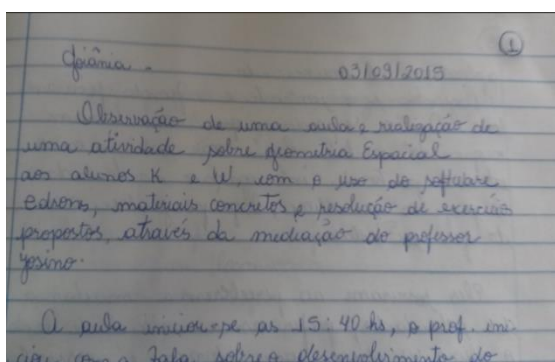 1
Goiânia. 03/09/2015
Observação de uma aula e realização de
uma atividade sobre Geometria Espacial
aos alunos K e W, com o uso do software
edrons, materiais concretos e resolução de exercícios
propostos, através da mediação do professor
Yosino.
A aula iniciou-se as 15:40 hs, o prof. ini-
ciou com a fala sobre o desenvolvimento do